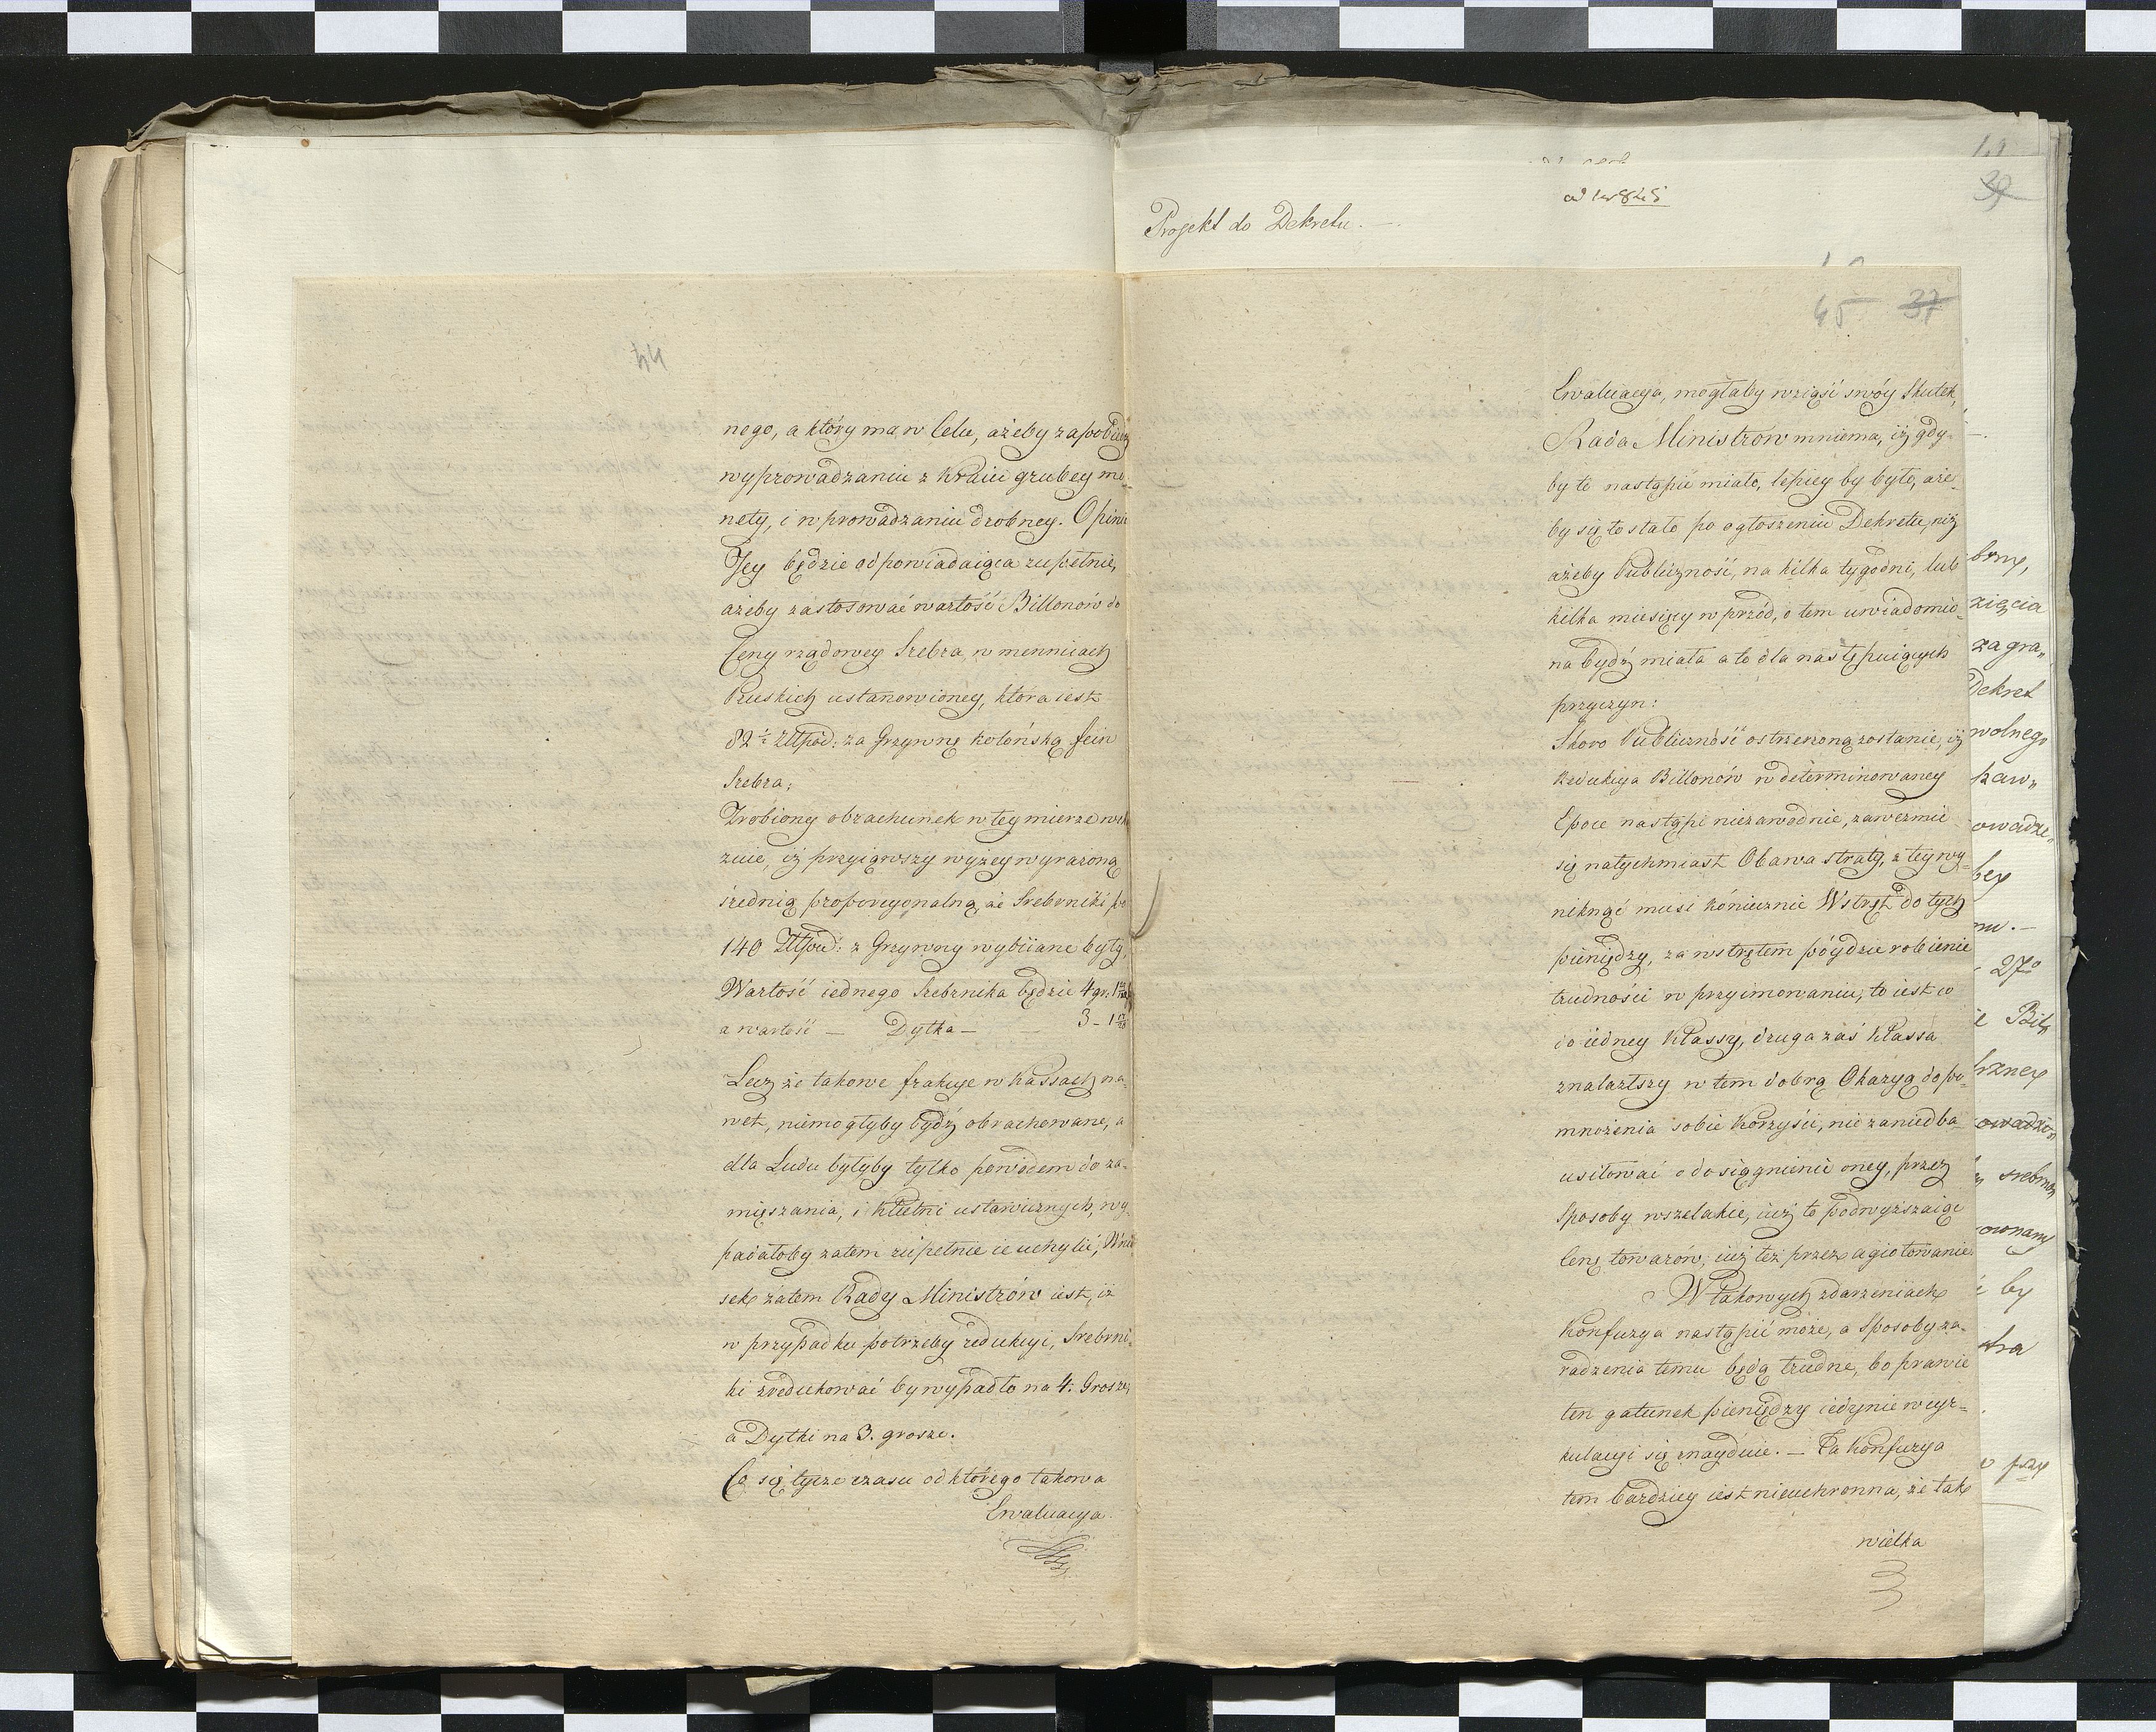 Projekt do Dekretu. —
39
44
nego, a który ma w Celu, ażeby zapobiedz
wyprowadzaniu z Kraiu grubey mo-
nety, i wprowadzaniu drobney. Opinii
Jey będzie odpowiadaiąca zupełnie,
ażeby zastosować wartość Billonów do
Ceny rządowey Srebra, w mennicach
Pruskich ustanowioney, która iest
82 ½ Złtpol: za Grzywnę kolońską fein
Srebra;
Zrobiony obrachunek w tey mierze
znie, iż przyiąwszy wyżey wyrażoną
średnią proporcyonalną, że Srebrniki po
140 Złtpol: z Grzywny wybiiane były,
Wartość iednego Srebrnika będzie 4 gr: 1
a wartość — Dytka — 3 – 1
Lecz że takowe frakcye w Kassach na-
wet, niemogłyby bydź obrachowane, a
dla Ludu byłyby tylko powodem do za-
mięszania, i Kłutni ustawicznych, wy-
padałoby zatem zupełnie ie uchylić, Wnio
sek zatem Rady Ministrów iest, iż
w przypadku potrzeby redukcyi, Srebrni-
ki zredukować by wypadło na 4: Grosze,
a Dytki na 3. grosze.
Co się tycze czasu od którego takowa
Ewaluacya
45 37
Ewaluacya, mogłaby wziąść swóy Skutek,
Rada Ministrów mniema, iż gdy-
by to nastąpić miało, lepiey by było, aże-
by się to stało po ogłoszeniu Dekretu, niż
ażeby Publiczność, na kilka tygodni, lub
kilka miesięcy w przód, o tem uwiadomio-
na bydź miała a to dla następuiących
przyczyn:
Skoro Publiczność ostrzeżoną zostanie, iż
Redukcya Billonów w determinowaney
Epoce nastąpi niezawodnie, zaweźmie
się natychmiast Obawa straty, z tey wy-
niknąć musi koniecznie Wstręt do tych
pieniędzy, za wstrętem póydzie robienie
trudności w przyimowaniu, to iest co
do iedney Klassy, druga zaś Klassa
znalazłszy w tem dobrą Okazyą do po-
mnożenia sobie Korzyści, nie zaniedba
usiłować o dosięgnienie oney, przez
Sposoby wszelakie, iuż to podwyższaiąc
Cenę towarów, iuż też przez agiotowanie.
W takowych zdarzeniach
Konfuzya nastąpić może, a Sposoby za-
radzenia temu będą trudne, bo prawie
ten gatunek pieniędzy iedynie w cyr-
kulacyi się znayduie. — Ta Konfuzya
tem bardziey iest nieuchronna, że tak
wielka
brny,
zięcia
zagra„
Dekret
wolnego
kaw„
owadze„
bey
mu. —
27o
Bil„
rzney
owadzo„
srebrney
ownany
by
tra